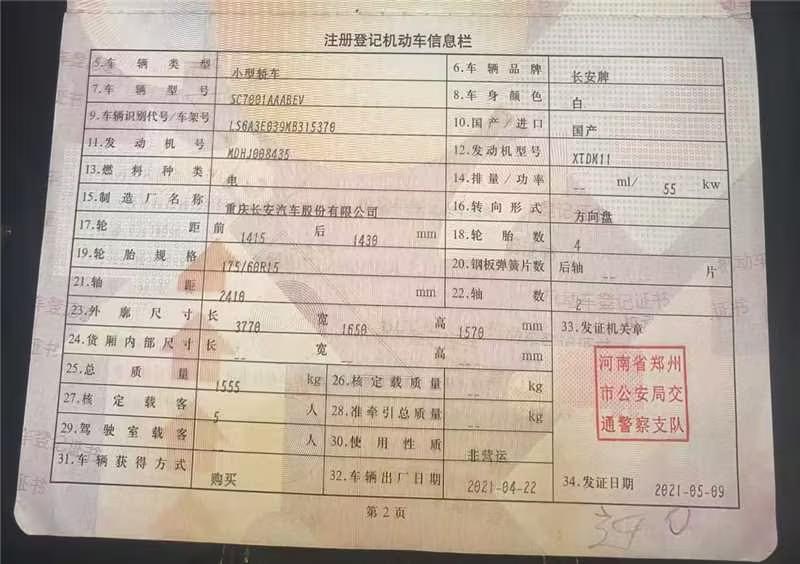 注册登记机动车信息栏
5.车辆类型 小型轿车 6.车辆品牌 长安牌
7.车辆型号 SC7001AAABEV 8.车身颜色 白
9.车辆识别代号/车架号 LS6A3E039MB315370 10.国产/进口 国产
11.发动机号 MDHJ008435 12.发动机型号 XTDM11
13.燃料种类 电 14.排量/功率 -- ml/ 55 kw
15.制造厂名称 重庆长安汽车股份有限公司 16.转向形式 方向盘
17.轮距 前 1415 后 1430 mm 18.轮胎数 4
19.轮胎规格 175/60R15 20.钢板弹簧片数 后轴 -- 片
21.轴距 2410 mm 22.轴数 2
23.外廓尺寸 长 3770 宽 1650 高 1570 mm 33.发证机关章
24.货厢内部尺寸 长 -- 宽 -- 高 -- mm
25.总质量 1555 kg 26.核定载质量 -- kg
27.核定载客 5 人 28.准牵引总质量 -- kg
29.驾驶室载客 -- 人 30.使用性质 非营运
31.车辆获得方式 购买 32.车辆出厂日期 2021-04-22 34.发证日期 2021-05-09
河南省郑州
市公安局交
通警察支队
第2页